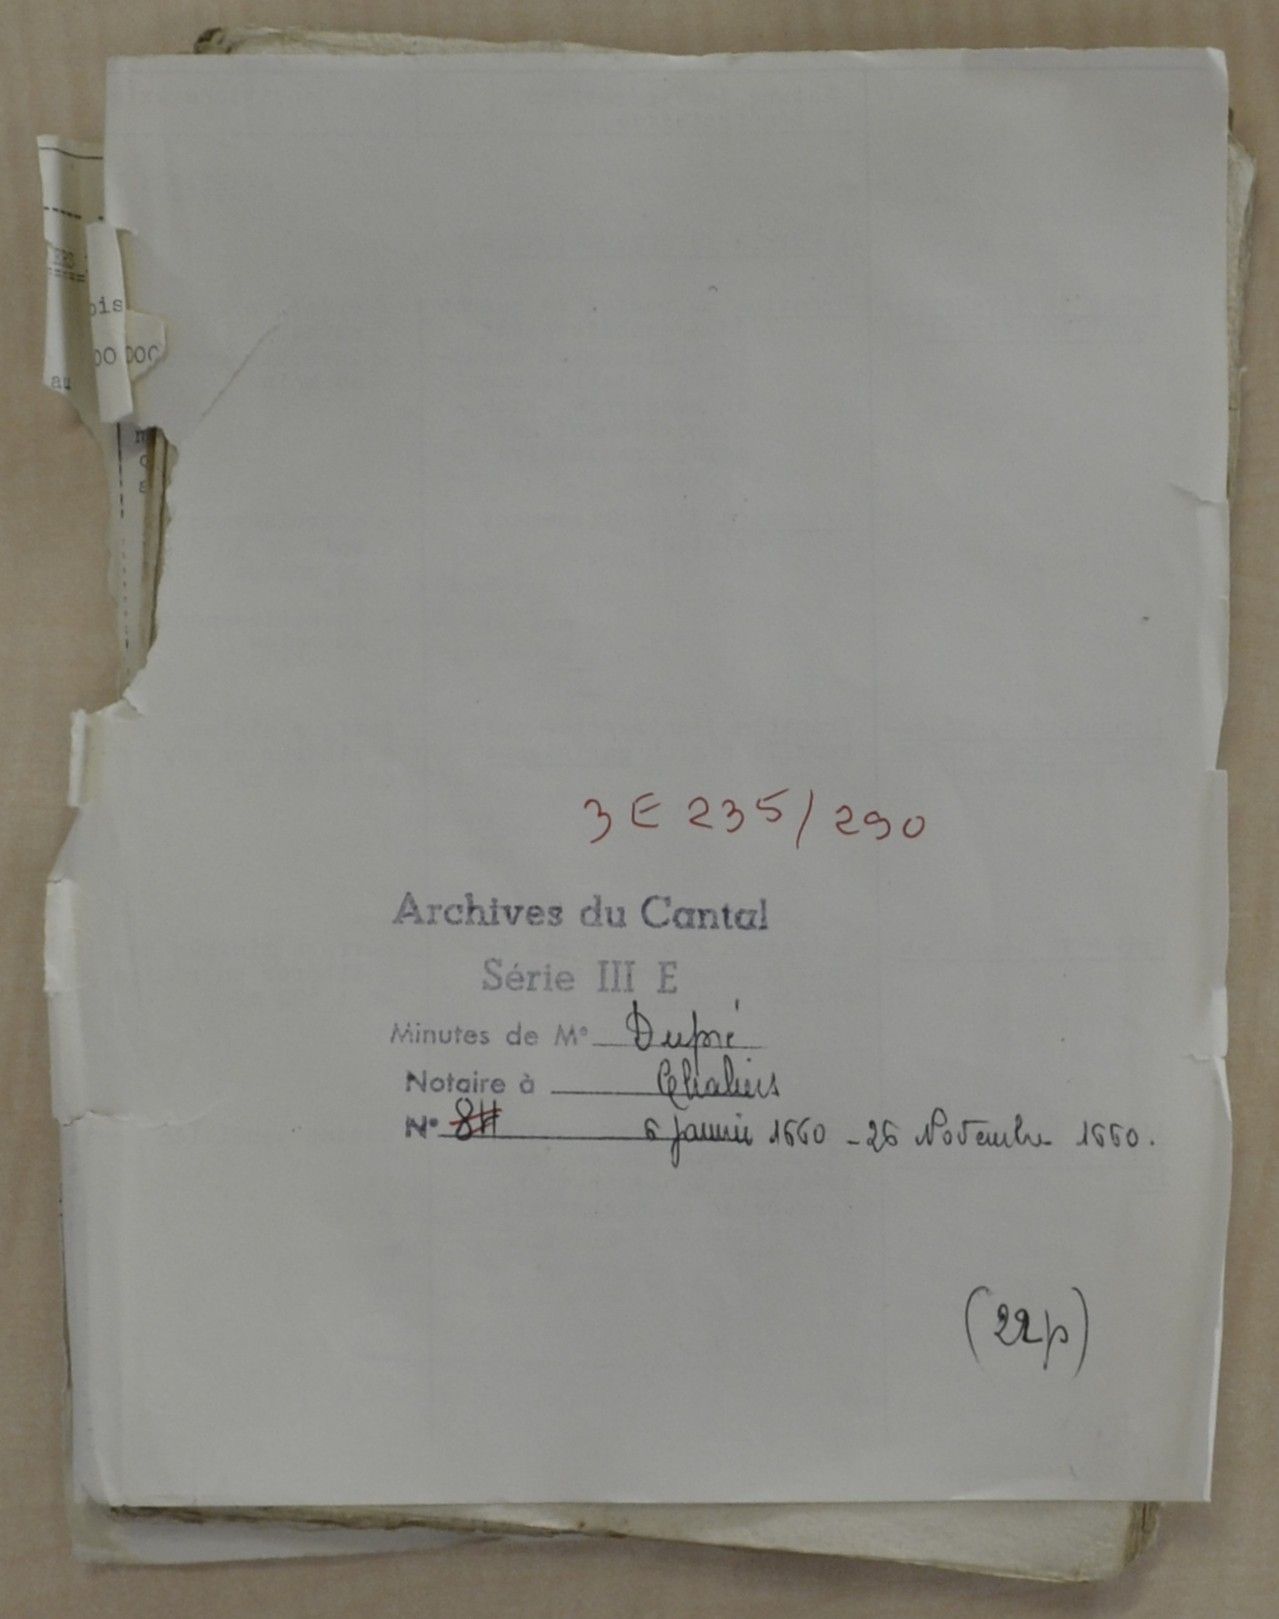 ois
00 000
au
3 E 235/290
Archives du Cantal
Série III E
Minutes de Me Dupré
Notaire à Chaliers
N° 8H 6 janvier 1660 - 26 Novembre 1660.
(22p)